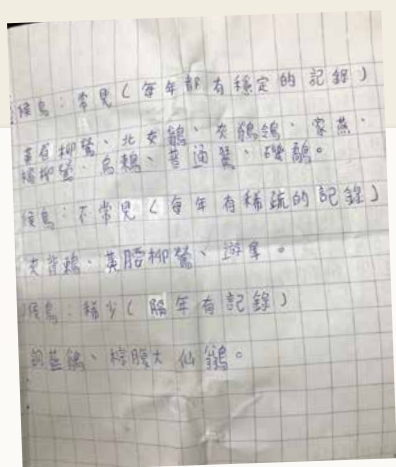 候鳥：常見（每年都有穩定的記錄）
黃眉柳鶯、北灰鶲、灰鶺鴒、家燕、
褐柳鶯、烏鶇、普通鵟、磯鷸。
候鳥：不常見（每年有稀疏的記錄）
灰背鶇、黃腰柳鶯、遊隼。
候鳥：稀少（隔年有記錄）
銅藍鶲、棕腹大仙鶲。